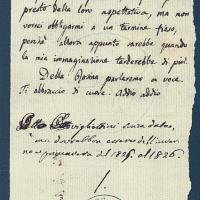 presto della loro aspettativa, ma non
vorrei obbligarmi a un termine fisso,
perchè allora appunto avrebbe quando
la mia immaginazione tarderebbe di più.
Della Donna parleremo a voce.
Ti abbraccio di cuore. Addio addio
senza data,
ma dovrebbero essere dell'inver
no e primavera del 1825 al 1826.